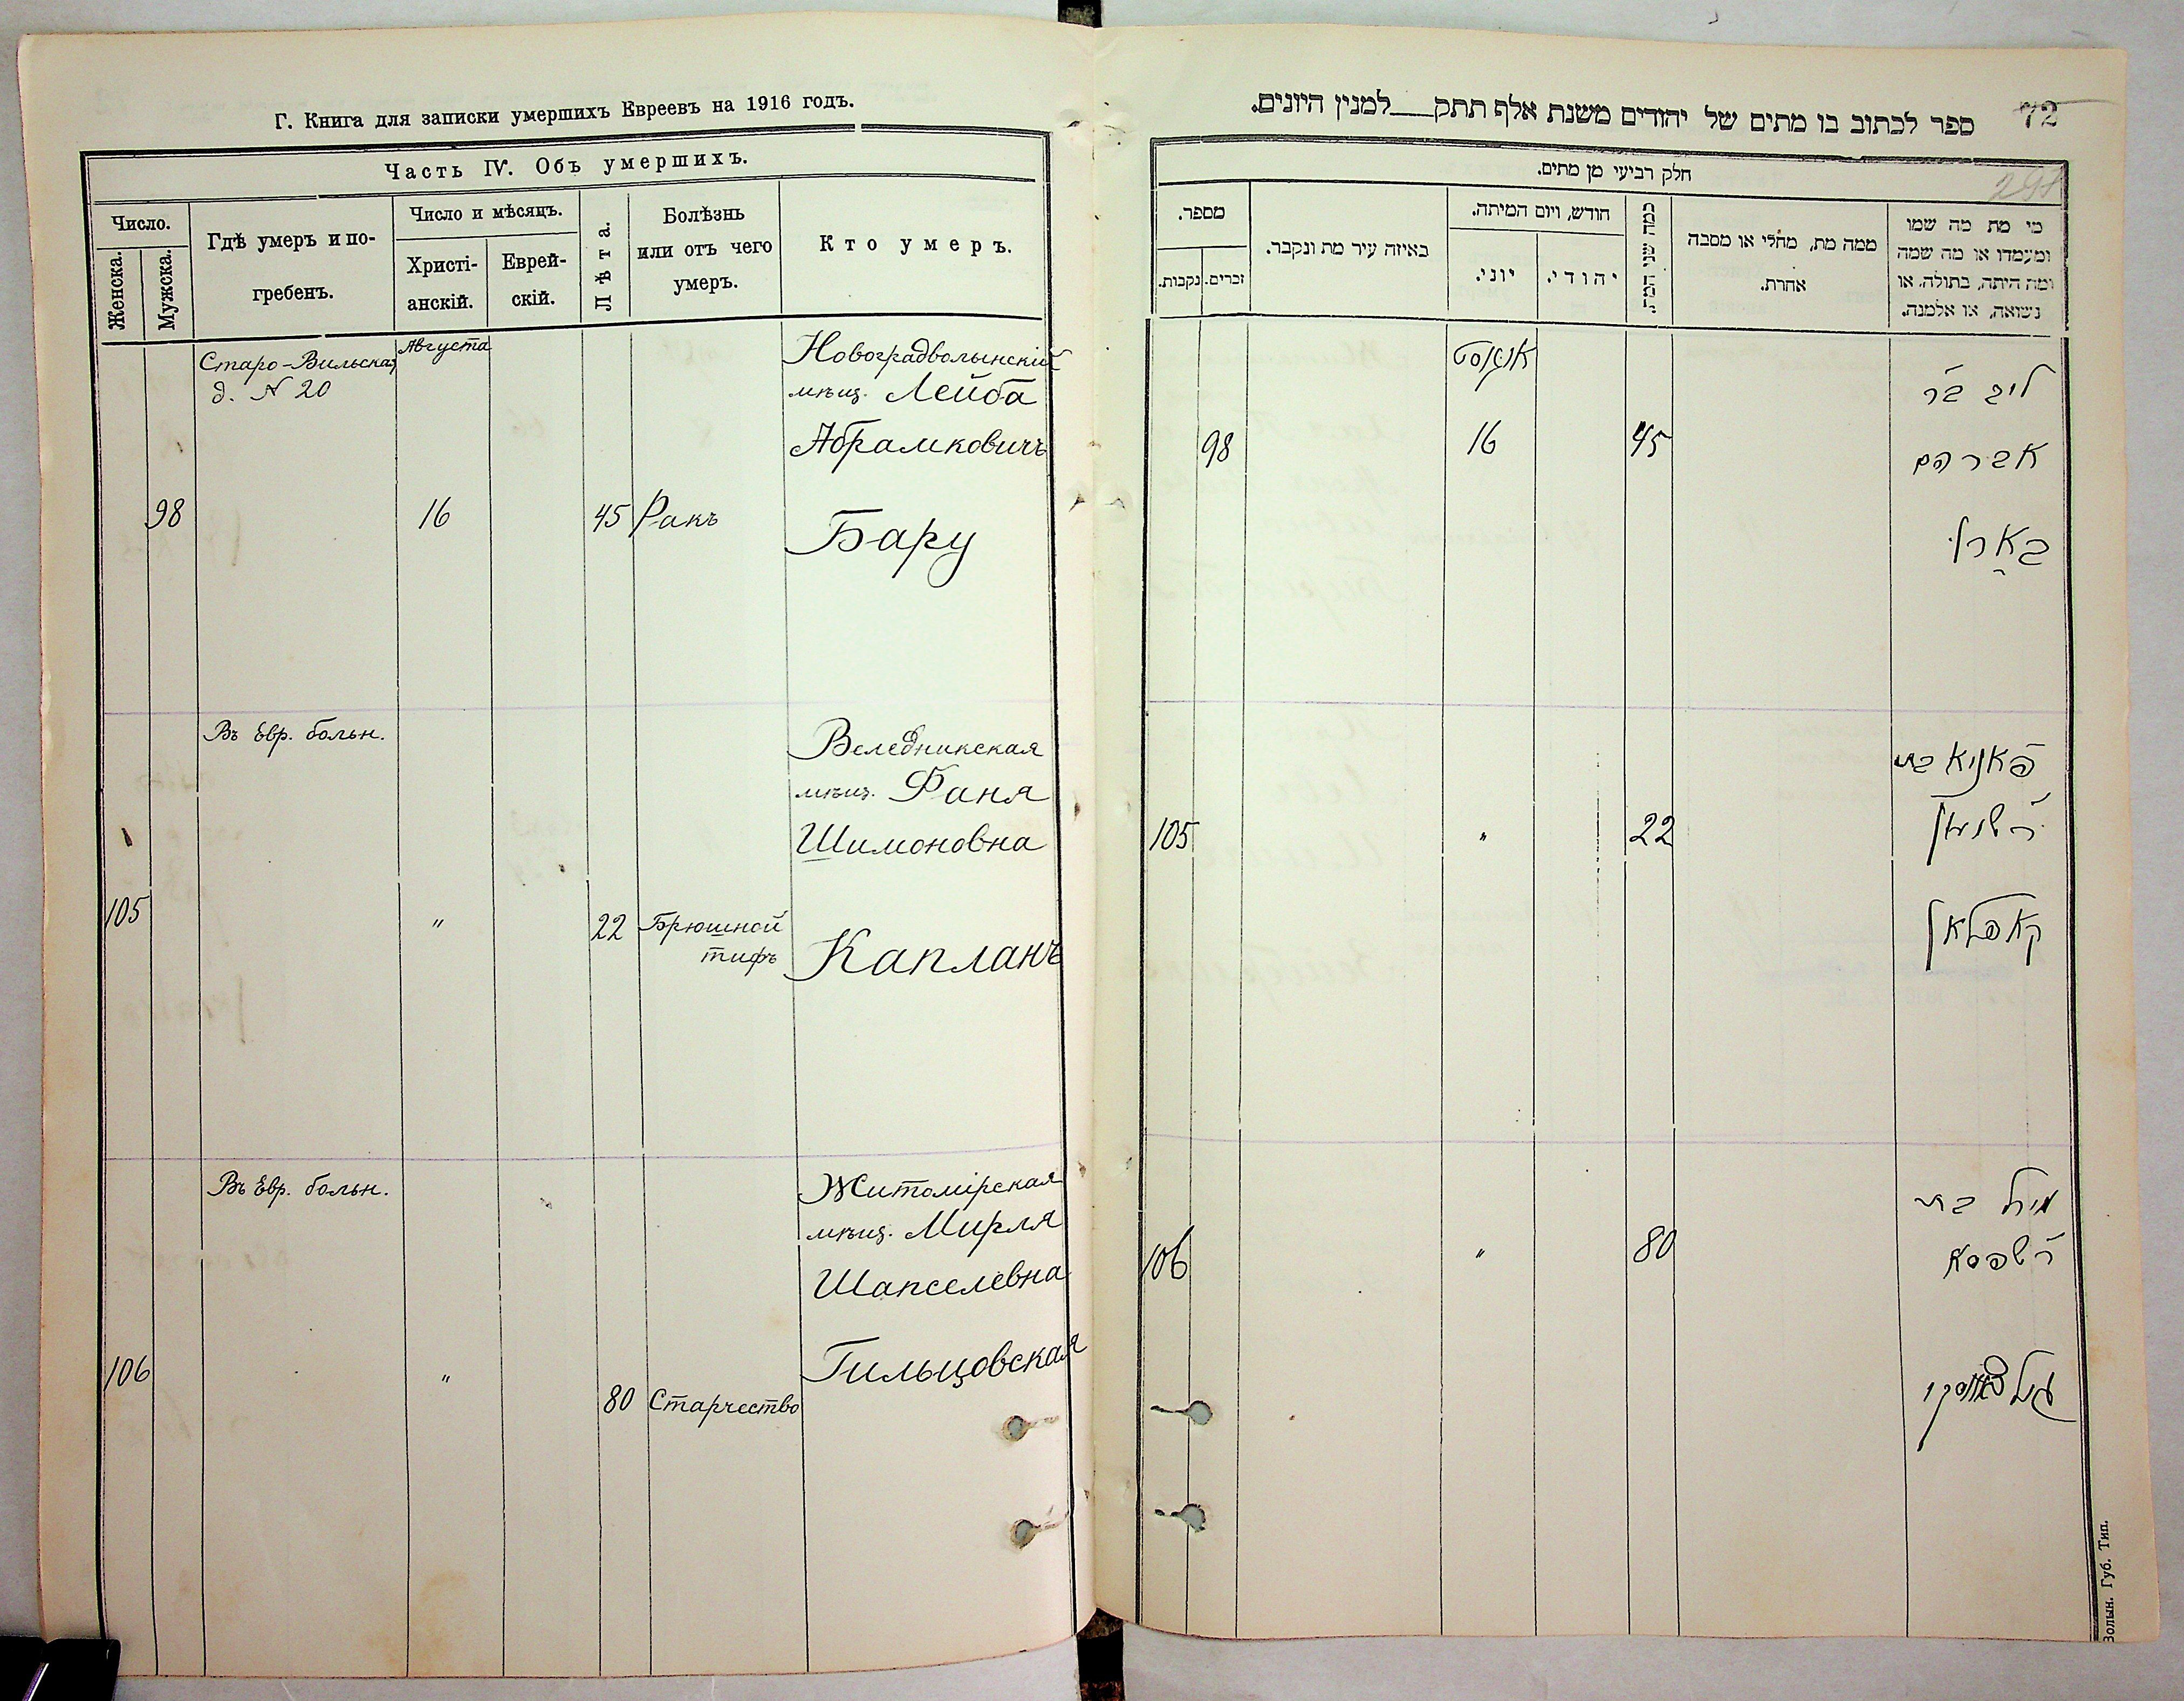 Г. Книга для записки умершихъ Евреевъ на 1916 годъ.
Часть IV. Объ умершихъ.
Число.
Женска.
Мужска.
Гдѣ умеръ и по-
гребенъ.
Число и мѣсяцъ.
Христі-
анскій.
Еврей-
скій.
Лѣта.
Болѣзнь
или отъ чего
умеръ.
Кто умеръ.
Старо-Вильская
д. № 20
Августа
Новоградволынскій
мѣщ. Лейба
Абрамковичъ
98 16 45 Ракъ
Бару
Въ Евр. больн.
Веледникская
мѣщ. Фаня
Шимоновна
105 " 22 Брюшной
тифъ
Капланъ
Въ Евр. больн.
Житомірская
мѣщ. Мирля
Шапселевна
Гильцовская
106 "
80 Старчество
72
ספר לכתוב בו מתים של יהודים משנת אלף תתק למנין היונים.
297
חלק רביעי מן מתים.
מספר.
זכרים.
נקבות.
באיזה עיר מת ונקבר.
חודש, ויום המיתה.
יוני.
יהודי.
כמה שני המת.
ממה מת, מחלי או מסבה
אחרת.
מי מת מה שמו
ומעמדו או מה שמה
ומה היתה, בתולה, או
נשואה, או אלמנה.
אויגוסט
ליב בר
אברהם
98 16 45
בארו
פאניא בת
ר שמעון
105 " 22
קאפלאן
מירל בת
ר שפסא
106 " 80
Волын. Губ. Тип.